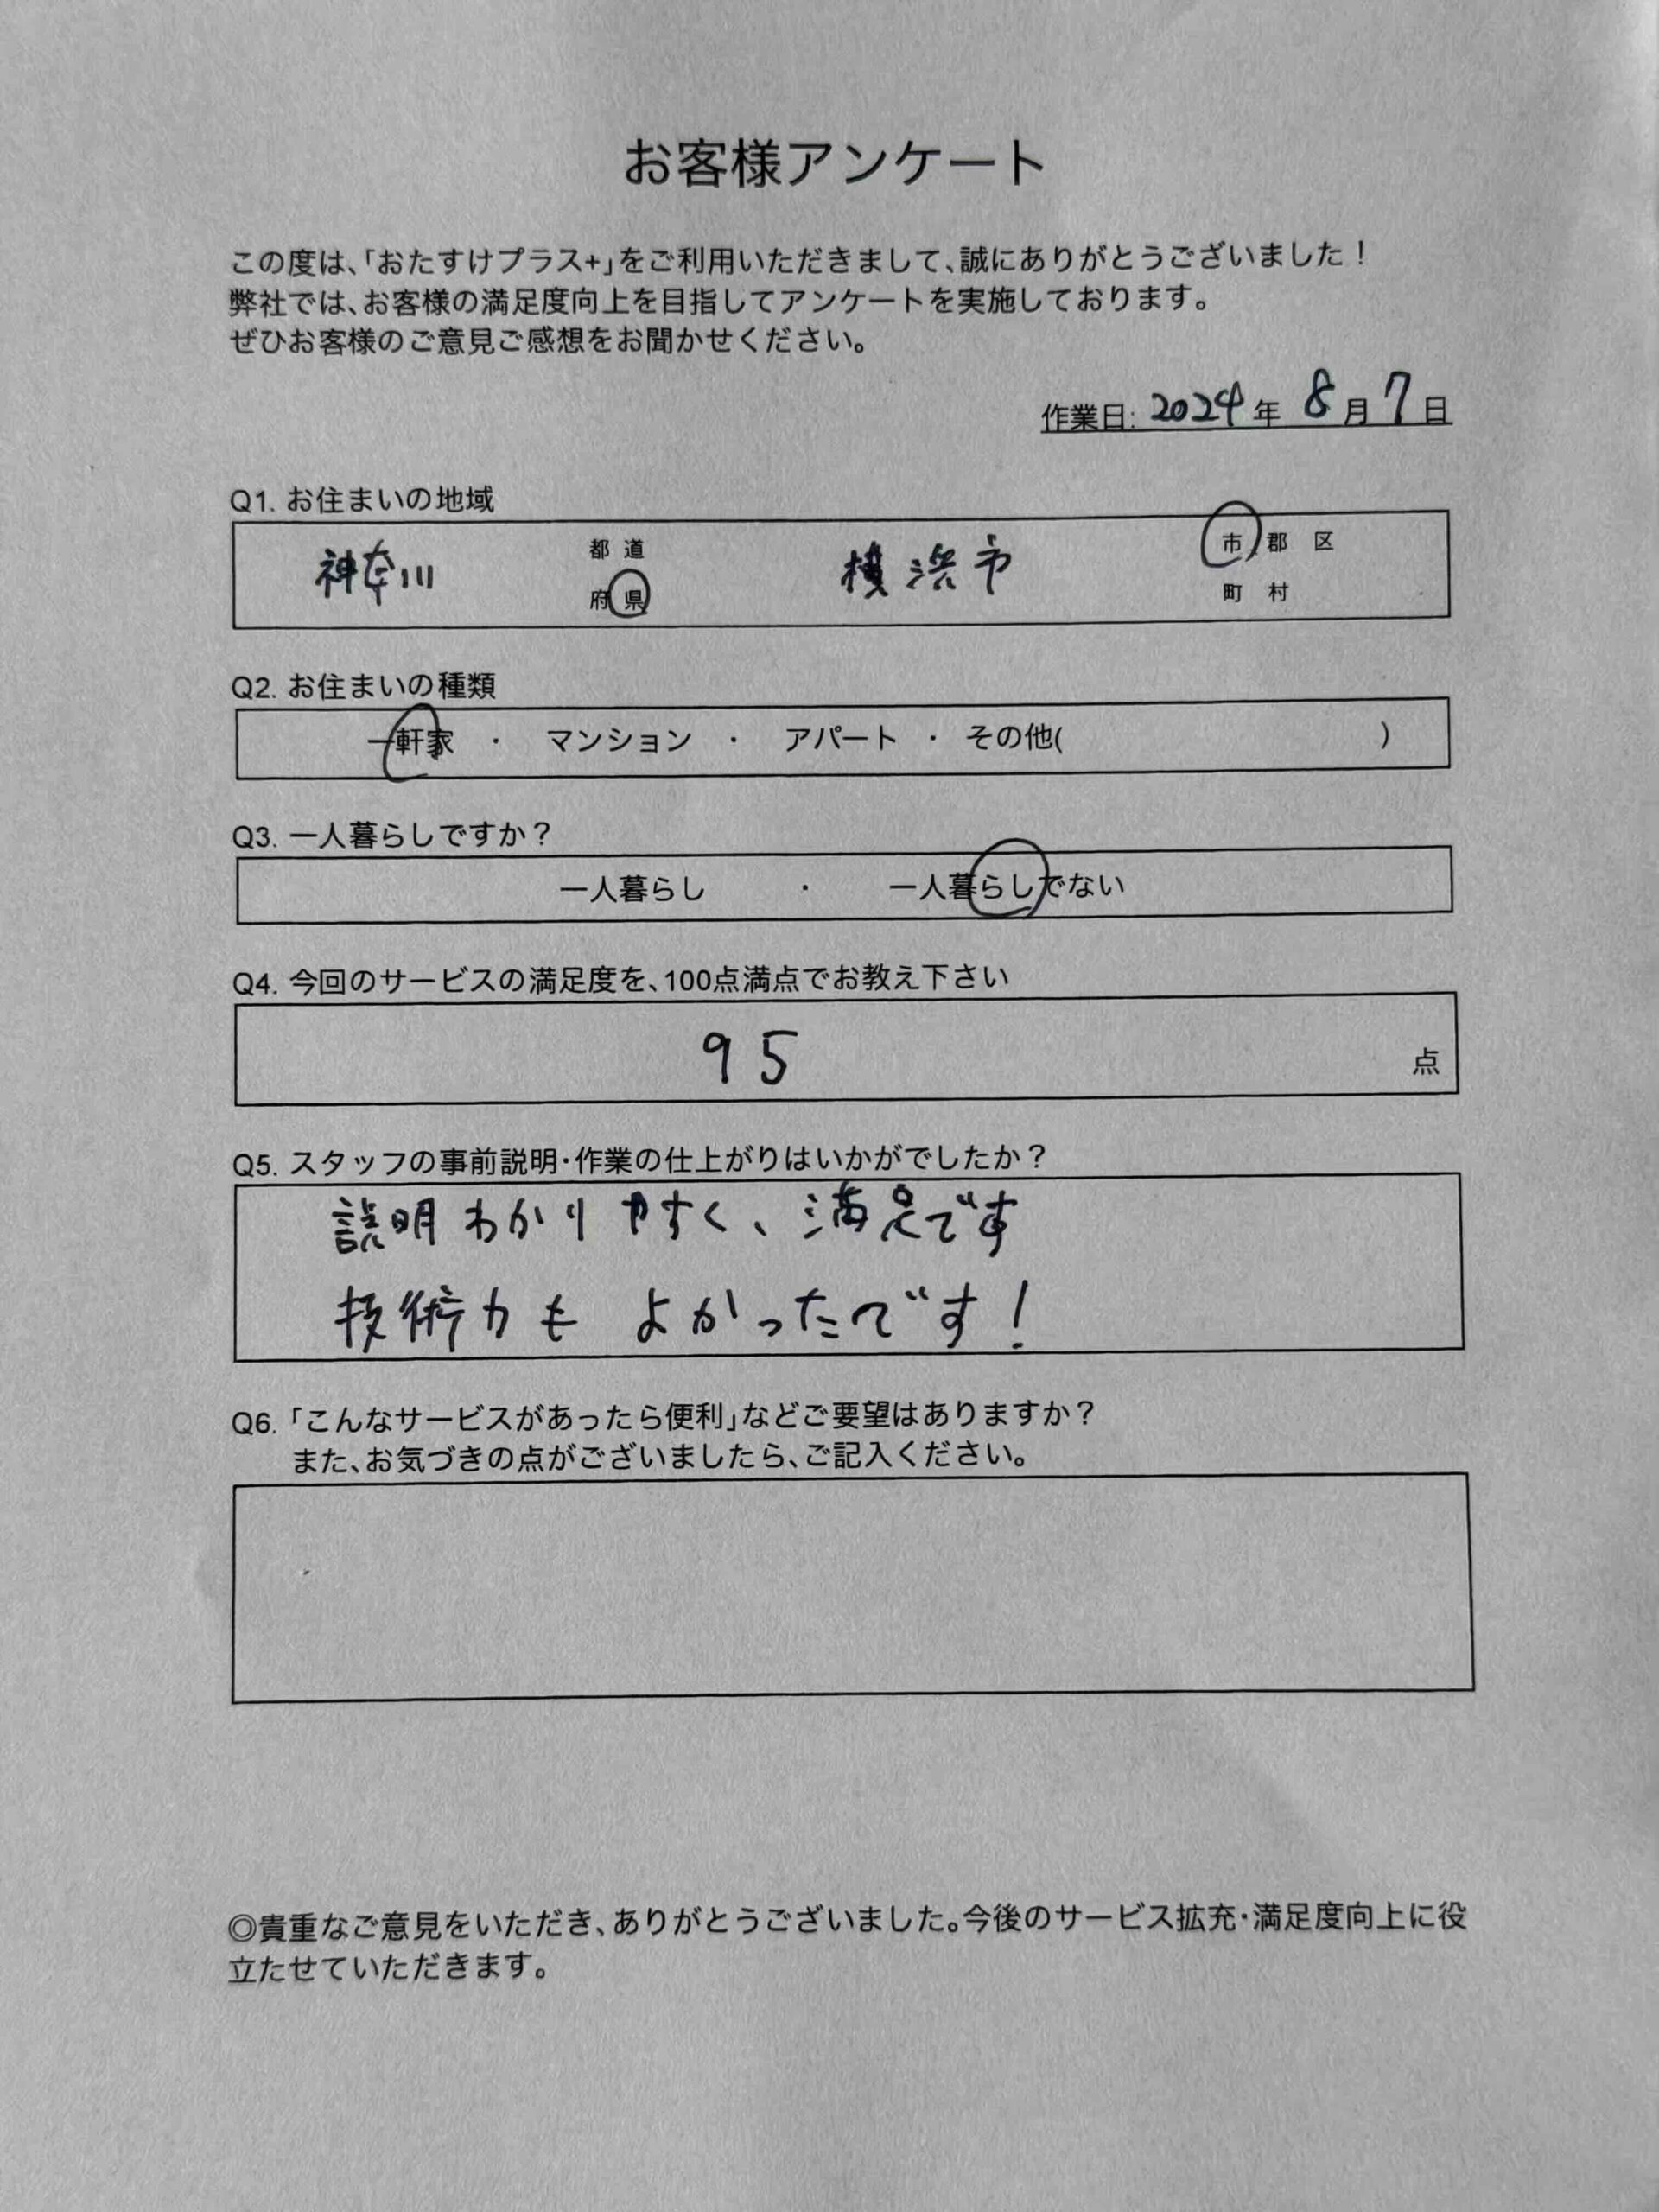 お客様アンケート
この度は、「おたすけプラス+」をご利用いただきまして、誠にありがとうございました！
弊社では、お客様の満足度向上を目指してアンケートを実施しております。
ぜひお客様のご意見ご感想をお聞かせください。
作業日: 2024 年 8 月 7 日
Q1. お住まいの地域
神奈川 都 道 府 県 横浜市 市 郡 区 町 村
Q2. お住まいの種類
一軒家 ・ マンション ・ アパート ・ その他( )
Q3. 一人暮らしですか？
一人暮らし ・ 一人暮らしでない
Q4. 今回のサービスの満足度を、100点満点でお教え下さい
95 点
Q5. スタッフの事前説明・作業の仕上がりはいかがでしたか？
説明わかりやすく、満足です
技術力も よかったです！
Q6. 「こんなサービスがあったら便利」などご要望はありますか？
また、お気づきの点がございましたら、ご記入ください。
◎貴重なご意見をいただき、ありがとうございました。今後のサービス拡充・満足度向上に役
立たせていただきます。